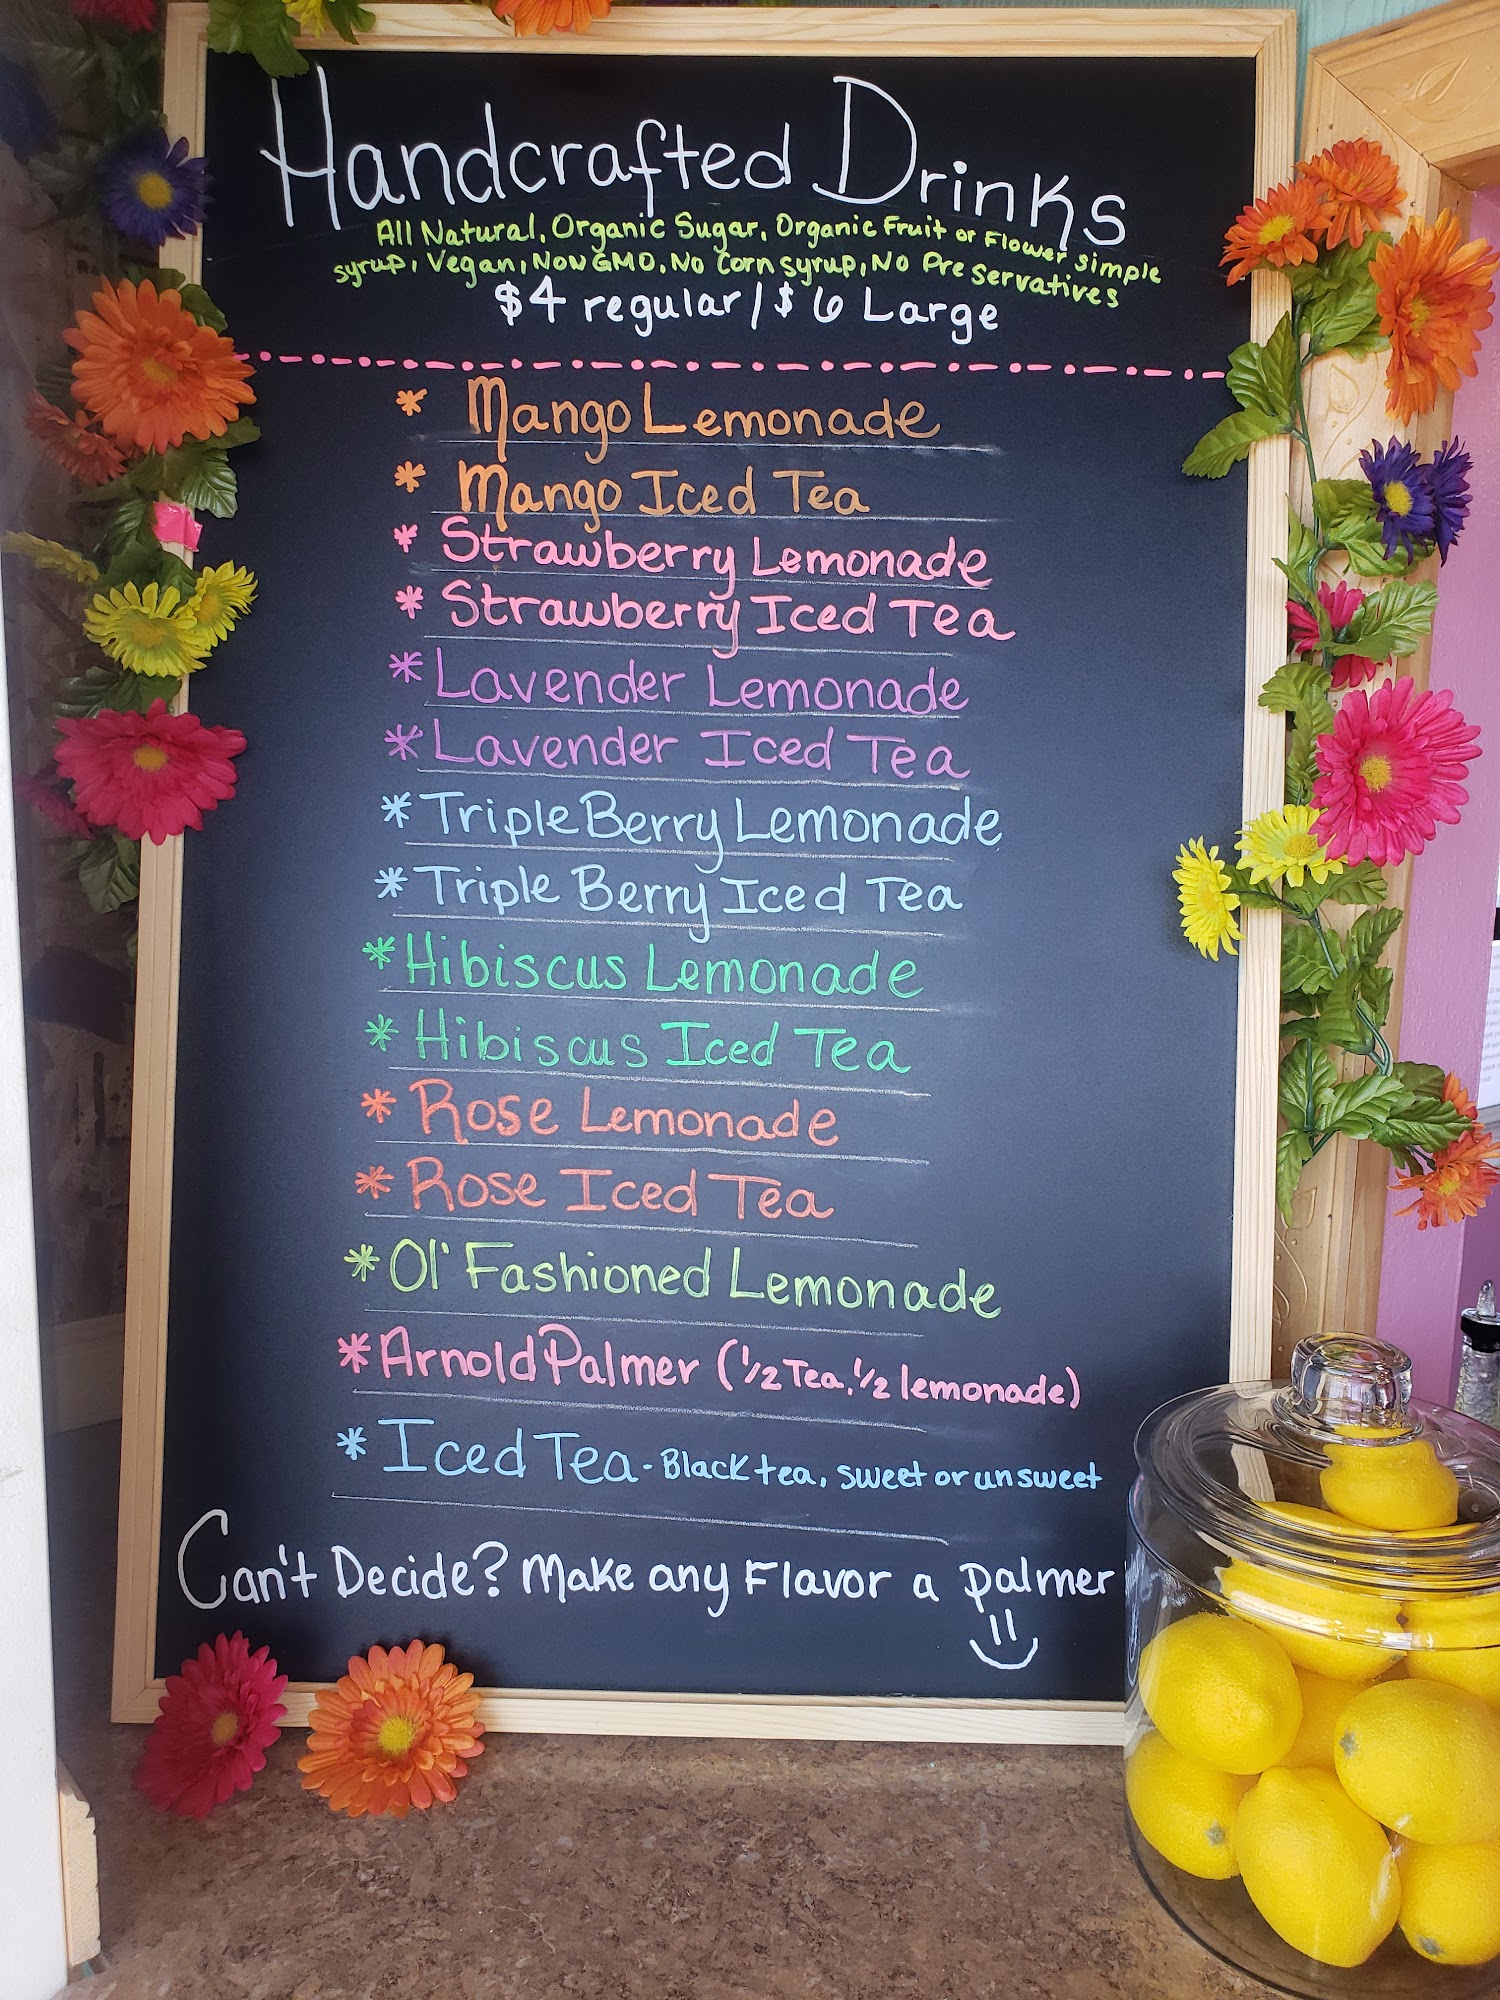 Handcrafted Drinks
All Natural, Organic Sugar, Organic Fruit or Flower simple
syrup, Vegan, Now GMO, No Corn syrup, No Preservatives
$4 regular / $6 Large
* Mango Lemonade
* Mango Iced Tea
* Strawberry Lemonade
* Strawberry Iced Tea
* Lavender Lemonade
* Lavender Iced Tea
* Triple Berry Lemonade
* Triple Berry Iced Tea
* Hibiscus Lemonade
* Hibiscus Iced Tea
* Rose Lemonade
* Rose Iced Tea
* Ol' Fashioned Lemonade
* Arnold Palmer (1/2 Tea, 1/2 lemonade)
* Iced Tea - Black tea, sweet or unsweet
Can't Decide? Make any Flavor a palmer